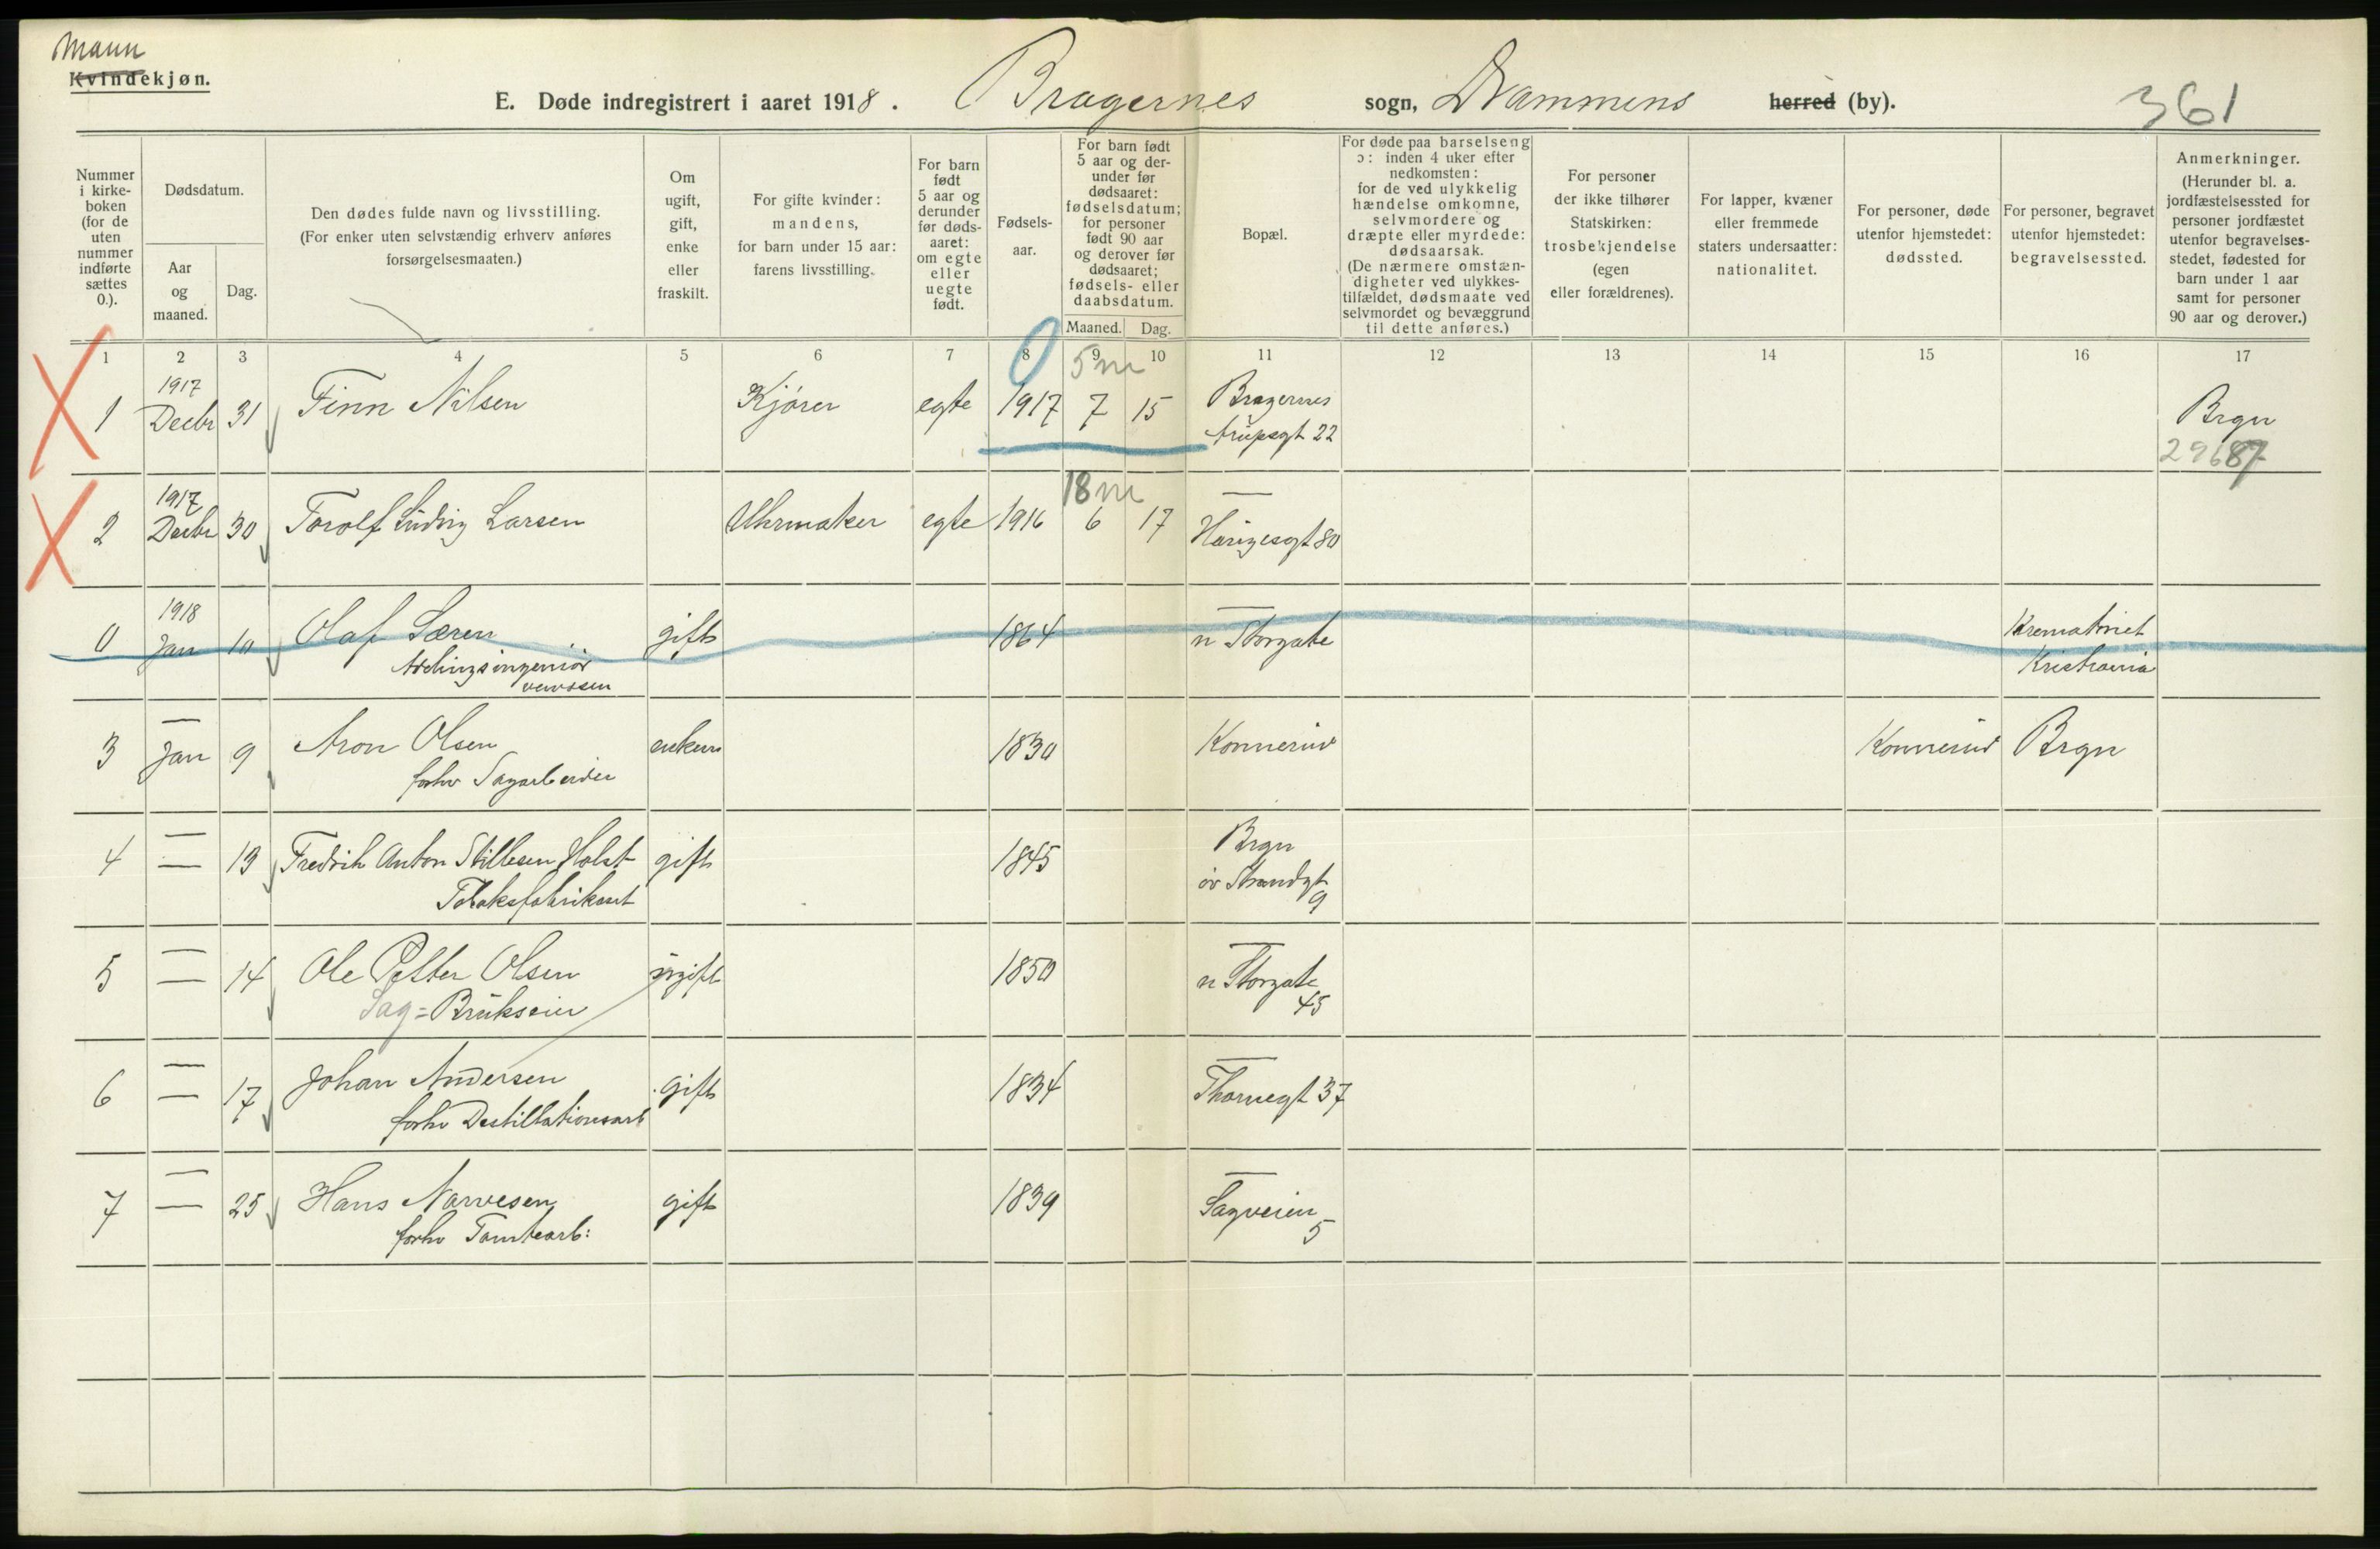 Mann
Kvindekjøn.
E. Døde indregistrert i aaret 1918. Bragernes sogn, Drammens herred (by).
361
Nummer i kirke-boken (for de uten nummer indførte sættes 0.).
Dødsdatum.
Aar og maaned.
Dag.
Den dødes fulde navn og livsstilling.
(For enker uten selvstændig erhverv anføres
forsørgelsesmaaten.)
Om ugift, gift, enke eller fraskilt.
For gifte kvinder:
mandens,
for barn under 15 aar:
farens livsstilling.
For barn født 5 aar og derunder før døds-aaret: om egte eller uegte født.
Fødsels-aar.
For barn født 5 aar og der-under før dødsaaret: fødselsdatum; for personer født 90 aar og derover før dødsaaret; fødsels- eller daabsdatum.
Maaned. Dag.
Bopæl.
For døde paa barselseng
ɔ: inden 4 uker efter
nedkomsten:
for de ved ulykkelig
hændelse omkomne,
selvmordere og
dræpte eller myrdede:
dødsaarsak.
(De nærmere omstæn-
digheter ved ulykkes-
tilfældet, dødsmaate ved
selvmordet og bevæggrund
til dette anføres.)
For personer
der ikke tilhører
Statskirken:
trosbekjendelse
(egen
eller forældrenes).
For lapper, kvæner
eller fremmede
staters undersaatter:
nationalitet.
For personer, døde
utenfor hjemstedet:
dødssted.
For personer, begravet
utenfor hjemstedet:
begravelsessted.
Anmerkninger.
(Herunder bl. a.
jordfæstelsessted for
personer jordfæstet
utenfor begravelses-
stedet, fødested for
barn under 1 aar
samt for personer
90 aar og derover.)
1 2 3 4 5 6 7 8 9 10 11 12 13 14 15 16 17
0 5 m
1917
1 Decbr 31 Finn Nilsen Kjører egte 1917 7 15 Bragernes
22
Brgn
29687
18 m
1917
2 Decbr 30 Torolf Ludvig Larsen Uhrmaker egte 1916 6 17 —
Haugesgt 80
1918
0 Jan 10 Olaf Særen gift 1864 — n Storgate Krematoriet
Kristiania
— 
3 Jan 9 Aron Olsen enkem 1830 Konnerud Konnerud Brgn
forhv Sagarbeider
—
4 — 13 Fredrik Anton Stillesen Holst gift 1845 Brgn
øv Strandgt
9
Tobaksfabrikant
—
5 — 14 Ole Petter Olsen ugift 1850 — n Storgate
45
Sag=Brukseier
—
6 — 17 Johan Andersen gift 1834 — Thornegt 37
forhv Destillationsarb
—
7 — 25 Hans Narvesen gift 1839 — Sagveien
5
forhv Tomtearb: